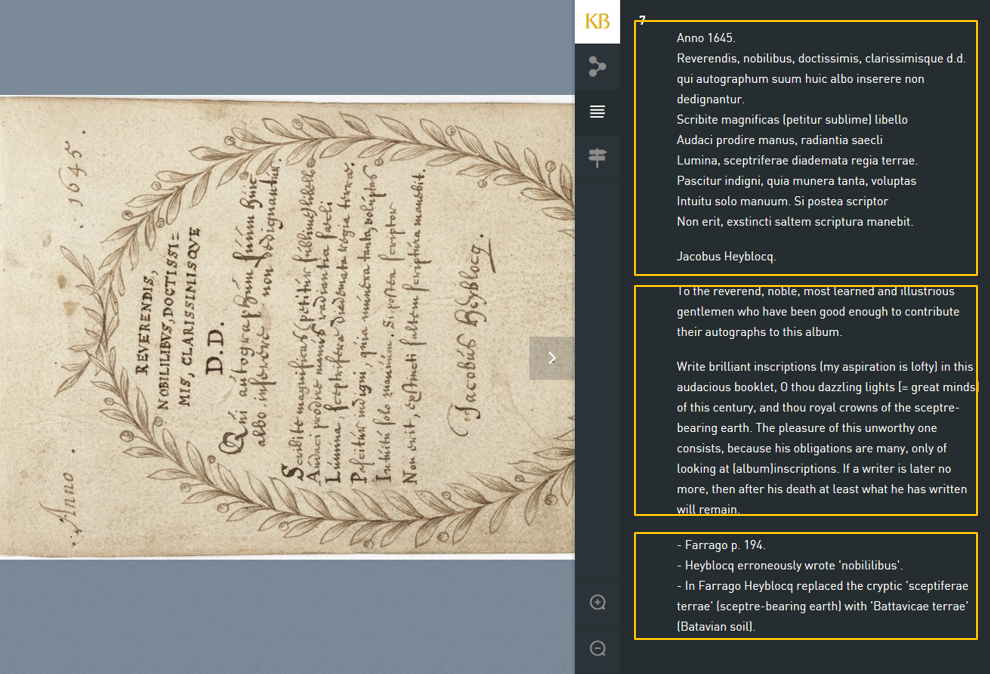 Anno . 1645.
REVERENDIS,
NOBILILIBVS, DOCTISSI=
MIS, CLARISSIMISQVE
D.D.
Qui autographum súum húic
albo inserere non dedignantur.
Scribite magnificas (petitur sublime) libello
Audaci prodire manus, radiantia saecli
Lumina, sceptriferae diademata regia terrae.
Pascitur indigni, quia munera tanta, voluptas
Intuitu solo manuum. Si postea scriptor
Non erit, exstincti saltem scriptura manebit.
Jacobús Heyblocq.
KB
7
Anno 1645.
Reverendis, nobilibus, doctissimis, clarissimisque d.d.
qui autographum suum huic albo inserere non
dedignantur.
Scribite magnificas (petitur sublime) libello
Audaci prodire manus, radiantia saecli
Lumina, sceptriferae diademata regia terrae.
Pascitur indigni, quia munera tanta, voluptas
Intuitu solo manuum. Si postea scriptor
Non erit, exstincti saltem scriptura manebit.
Jacobus Heyblocq.
To the reverend, noble, most learned and illustrious
gentlemen who have been good enough to contribute
their autographs to this album.
Write brilliant inscriptions (my aspiration is lofty) in this
audacious booklet, O thou dazzling lights [= great minds
of this century, and thou royal crowns of the sceptre-
bearing earth. The pleasure of this unworthy one
consists, because his obligations are many, only of
looking at (album)inscriptions. If a writer is later no
more, then after his death at least what he has written
will remain.
- Farrago p. 194.
- Heyblocq erroneously wrote 'nobililibus'.
- In Farrago Heyblocq replaced the cryptic 'sceptiferae
terrae' (sceptre-bearing earth) with 'Battavicae terrae'
(Batavian soil).